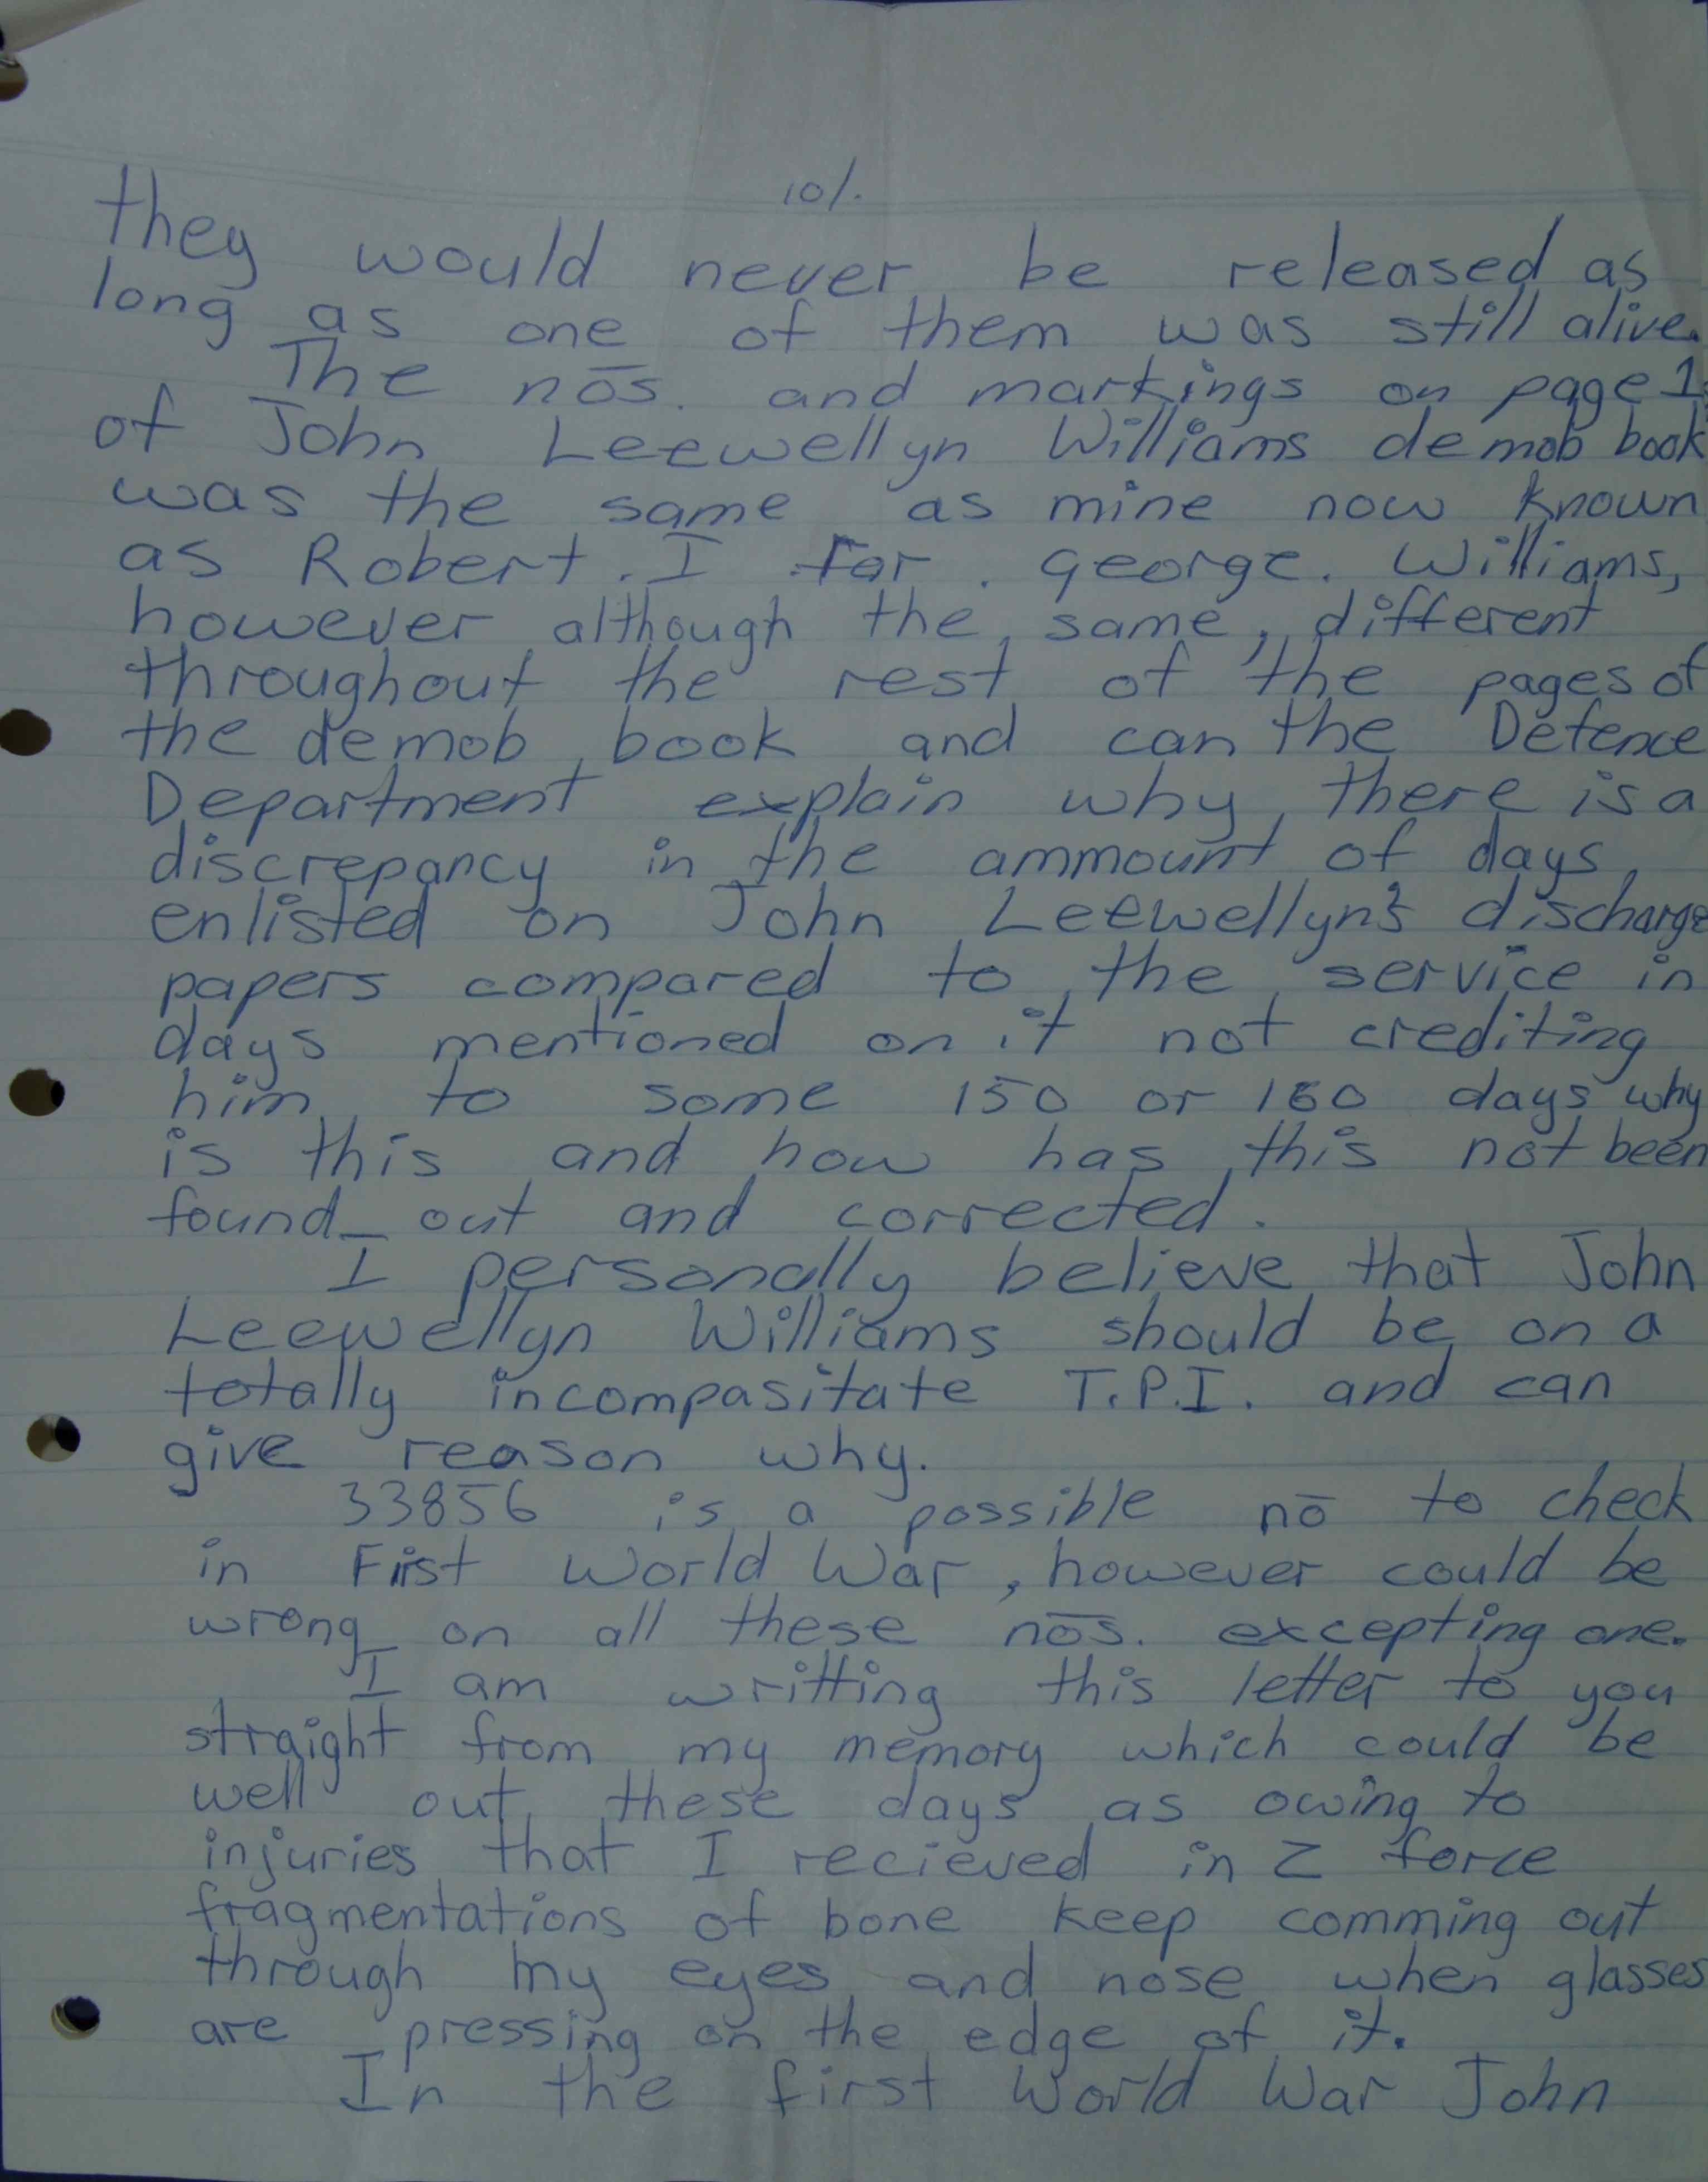 10/.
they would never be released as
long as one of them was still alive.
The nōs. and markings on page 1.
of John Leewellyn Williams demob book
was the same as mine now known
as Robert. I for. george. Williams,
however although the same, different
throughout the rest of the pages of
the demob book and can the Defence
Department explain why there is a
discrepancy in the ammount of days
enlisted on John Leewellyn's discharge
papers compared to the service in
days mentioned on it not crediting
him to some 150 or 160 days why
is this and how has this not been
found out and corrected.
I personally believe that John
Leewellyn Williams should be on a
totally incompasitate T.P.I. and can
give reason why.
33856 is a possible nō to check
in First World War, however could be
wrong on all these nōs. excepting one.
I am writting this letter to you
straight from my memory which could be
well out these days as owing to
injuries that I recieved in Z force
fragmentations of bone keep comming out
through my eyes and nose when glasses
are pressing on the edge of it.
In the first World War John